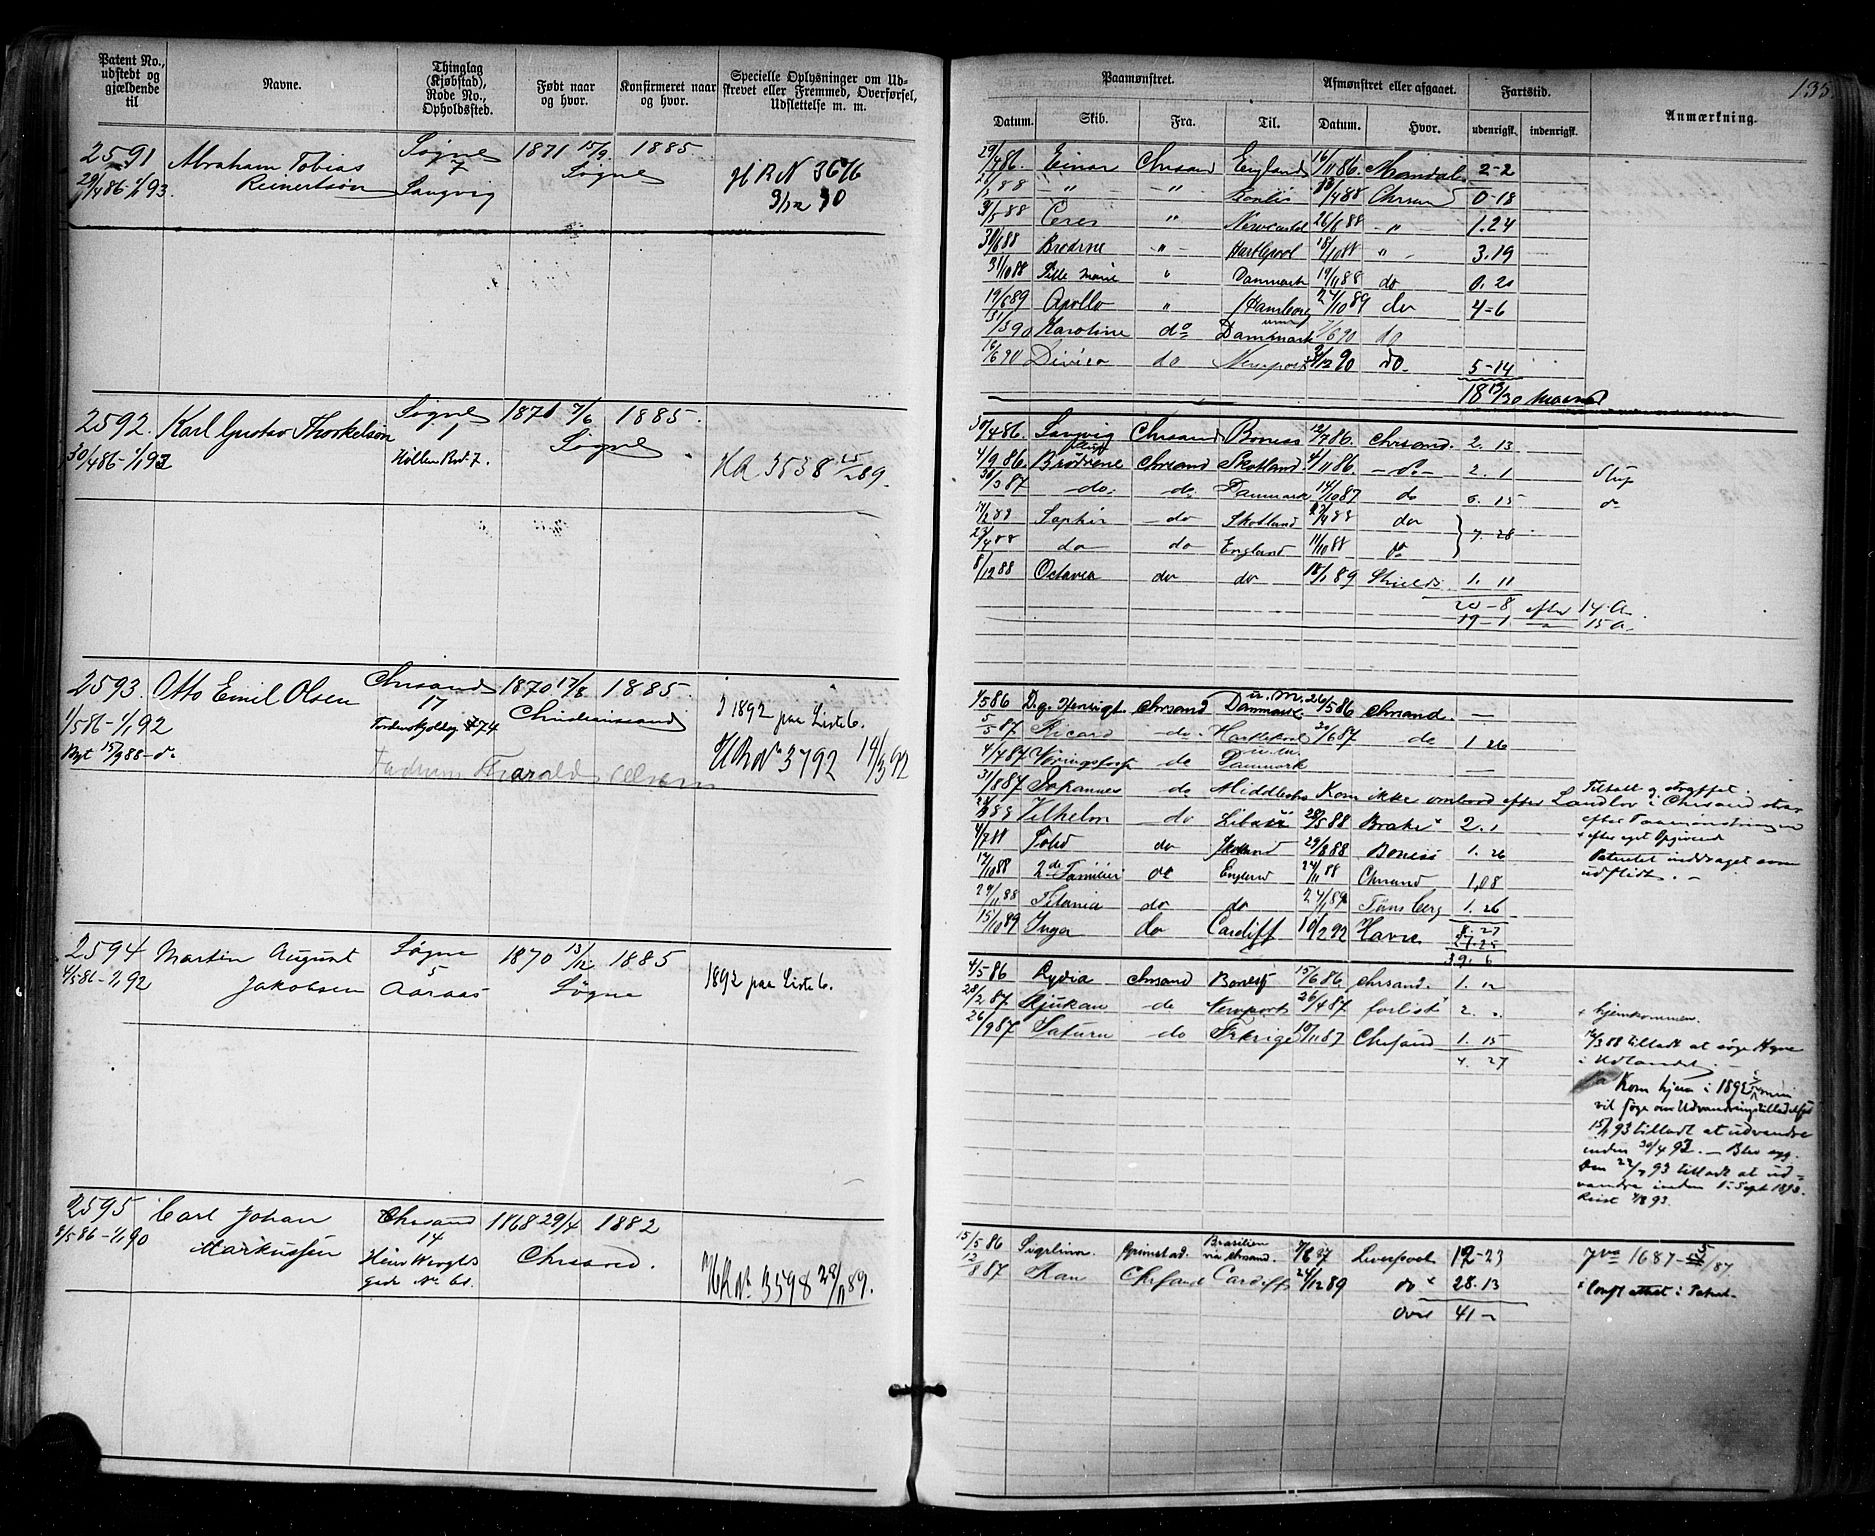 Patent No., udstedt og gjældende til
Navne.
Thinglag (Kjøbstad), Rode No., Opholdssted.
Født naar og hvor.
Konfirmeret naar og hvor.
Specielle Oplysninger om Udskrevet eller Fremmed, Overførsel, Udslettelse m. m.
2591 Abraham Tobias Søgne 1871 15/9 1885.
29/4 86-1/1 93. Reinertsøn 7 Søgne
Langvig
H R N 3676
3/12 90
2592. Karl Gustav Thorkelsøn Søgne 1871 7/6 1885.
30/4 86-1/1 93 1 Søgne
Høllen Brd. 7.
HR 3538 25/2 89.
2593. Otto Emil Olsen Chrsand 1870 17/8 1885.
1/5 86-1/1 92 17 Christianssand
Bgt 15/9 88-do Tordenskjoldsg 74
I 1892 paa Liste 6.
HR No 3792 14/3 92
2594 Martin August Søgne 1870 13/12 1885
4/5 86-1/1 92 Jakobsen 5 Søgne
Aaraas
1892 paa Liste 6.
2595 Carl Johan Chrsand 1868 29/4 1882
5/5 86-1/1 90 Markussen 14 Chrsand.
gade No. 61.
HR No. 3598 28/11 89.
135.
Paamønstret.
Afmønstret eller afgaaet.
Fartstid.
Anmærkning.
Datum. Skib. Fra. Til. Datum. Hvor. udenrigsk. indenrigsk.
29/4 86. Einar Chrsand England 16/11 86. Mandal. 2-2
21/2 88 -"- -"- 12/4 88 Chrsand 0-18
3/5 88 Ceres " Newcastel 26/6 88 -"- 1.24
30/6 88 Brødrne -"- Hartlepool 18/10 88 " 3.19
31/10 88 Lille Marie " Danmark 19/11 88 do 0.20
19/6 89 Apollo " Hamborg 24/10 89 do 4-6
31/3 90 Karoline do Danmark 7/6 90 do
16/6 90 do Newport 3/12 90 do. 5-14
18 13/30 Maaned
30/4 86. Langvig Chrsand Boness 12/7 86. Chrsand. 2. 13
4/9 86. Brødrene Chrsand Skotland 4/11 86. -do- 2. 1 Slup
30/3 87 -do- do. Danmark 14/10 87 do 6. 15 do
14/2 88 Saphir -do Skotland 23/4 88 do
23/4 88 do do England 11/10 88 do 7. 28
8/12 88 Octavia do do 18/1 89 Shields 1. 11
20-8 efter 14 A.
19-1 -"- 15 A.
1/5 86 D.g. Henrigt Chrsand Danmark u.m. 26/5 86 Chrsand. —
5/5 87 Ricard do. Hartlepool 20/6 87 do 1. 26
4/7 87 do Danmark u.m. —
31/8 87 Johannes do Middlesbro Kom ikke ombord efter Landlov i Chrsand strax
Tiltalt og straffet.
efter Paamønstringen
Vilhelm do Libau 28/5 88 Brake 2. 1 + efter eget Opgivende
4/7 88 do 29/8 88 Boness 1. 26 Patentet inddraget som
17/10 88 2de Familier do England 24/11 88 Chrsand 1,08 udslidt. —
29/11 88 Titania do do 27/1 89 Tønsberg 1. 26
15/10 89 Inga do Cardiff 10/2 92 Havre
8. 27
27.25
39. 6
4/5 86 Lydia Chrsand Boness 15/6 86 Chrsand. 1. 12
28/2 87. Rjukan do Newport 26/4 87 forlist + 2. " + hjemkommen.
26/9 87 Saturn do Sverige 10/11 87 Chrsand 1. 15
4. 27
16/3 88 tilladt at søge Hyre
i Udlandet —
Kom hjem i 1892
vil søge om Udvandringstilladelse
15/1 93 tilladt at udvandre
inden 30/4 93. — Blev syg.
Den 22/7 93 tilladt at ud-
vandre inden 1. Sept 1893.
Reist 4/8 93.
15/5 86 Sigelinne Grimstad. Brasilien via Chrsand. 7/6 87 Liverpool 12-23
12/8 87 Ran Chrsand Cardiff 24/12 89 do + 28.13
Over 41 -